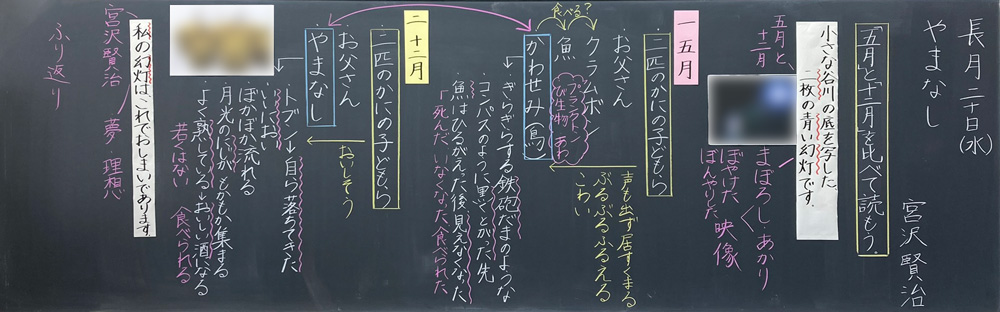 長月二十日(水)
やまなし
宮沢賢治
「五月」と「十二月」を比べて読もう。
小さな谷川の底を写した、
二枚の青い幻灯です。
五月と、
十二月
まぼろし・あかり
ぼやけた 映像
ぼんやりした
一 五月
・二匹のかにの子どもら
声も出ず居すくまる
ぶるぶるふるえる
こわい
・お父さん
・クラムボン
プランクトン
び生物
あわ
・魚
食べる?
・かわせみ(鳥)
・ぎらぎらする鉄砲だまのような
・コンパスのように黒くとがった先
・魚はひるがえった後見えなくなった
「死んだ、いなくなった、食べられた
二 十二月
・二匹のかにの子どもら
おいしそう
・お父さん
・やまなし
・トブン→自ら落ちてきた
・いいにおい
・ぽかぽか流れる
・月光のにじがもかもか集まる
・よく熟している→おいしい酒になる
若くはない 食べられる
私の幻灯は、これでおしまいであります。
宮沢賢治 夢 理想
ふり返り